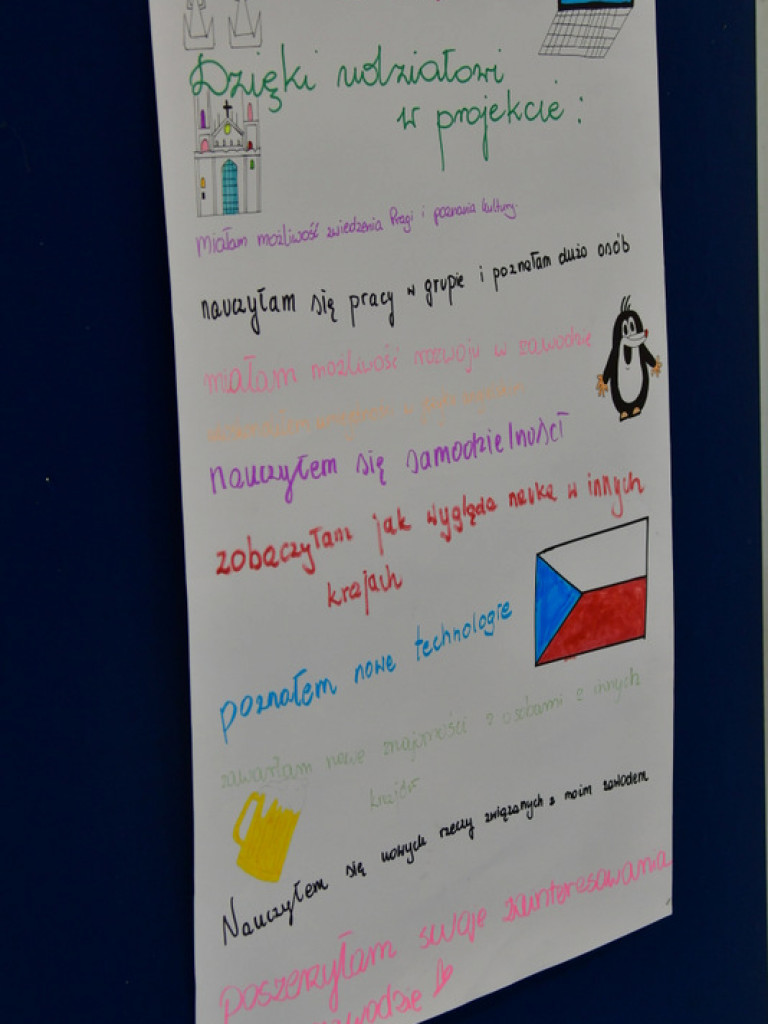 Dzięki udziałowi
w projekcie:
miałam możliwość zwiedzenia Pragi i poznania kultury.
nauczyłam się pracy w grupie i poznałam dużo osób
miałam możliwość rozwoju w zawodzie
nauczyłem się samodzielności
zobaczyłam jak wygląda nauka w innych
krajach
poznałem nowe technologie
zawarłam nowe znajomości z osobami z innych
krajów
Nauczyłem się nowych rzeczy związanych z moim zawodem
poszerzyłam swoje zainteresowania
zawodzie